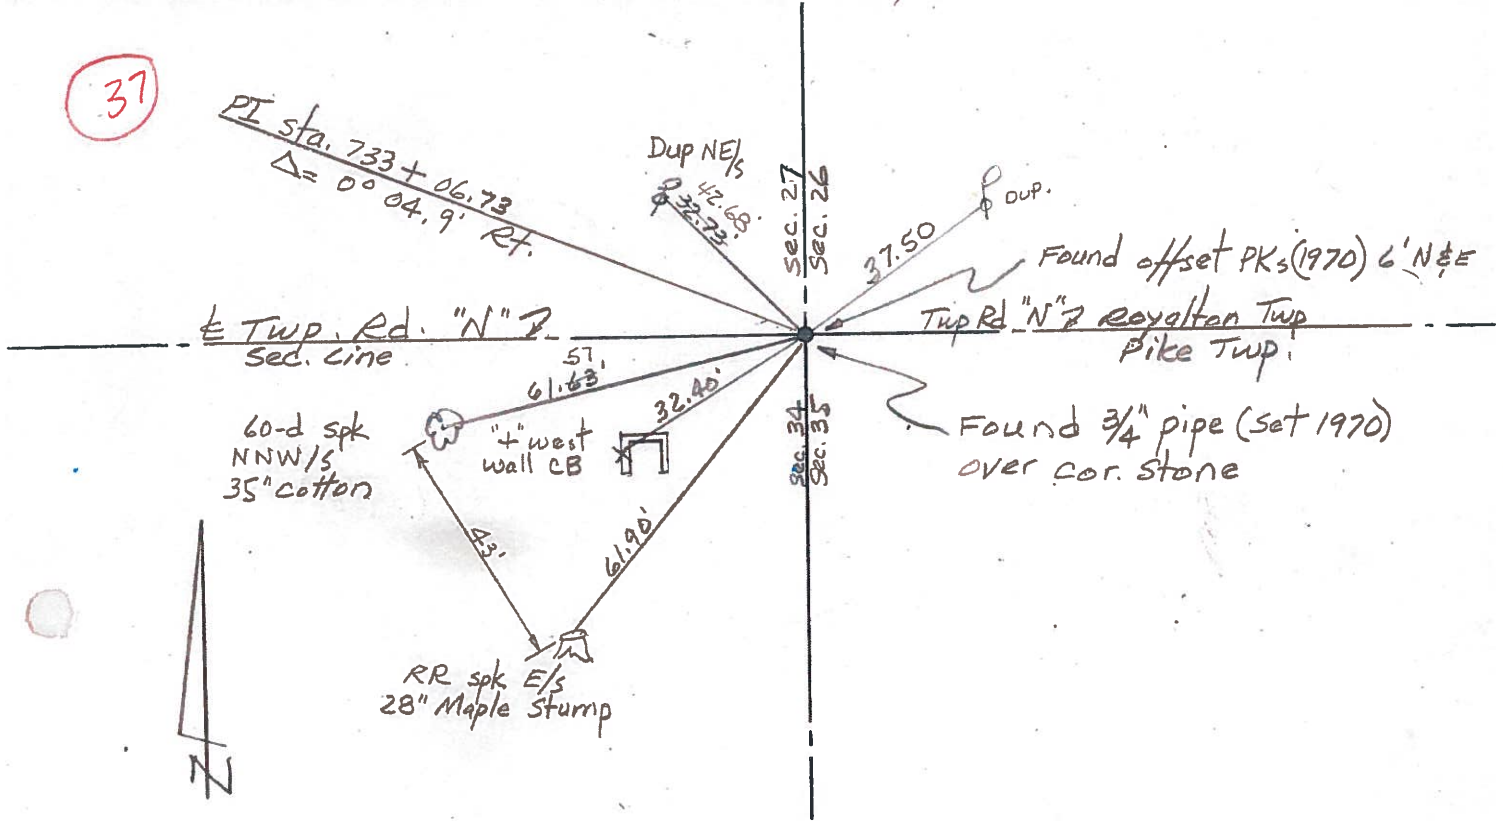 37
PI sta. 733 + 06.73
Δ= 0° 04.9' Rt.
Dup NE/s
42.68'
32.73'
Sec. 27
Sec. 26
DUP.
37.50
Found offset PKs (1970) 6' N & E
℄ Twp. Rd. "N"
Sec. Line
Twp Rd "N" Royalton Twp
Pike Twp.
57
61.63'
32.40'
60-d spk
NNW/s
35" cotton
"+" west
wall CB
Sec. 34
Sec. 35
Found 3/4" pipe (Set 1970)
over cor. stone
43'
61.90'
RR spk E/s
28" Maple Stump
N